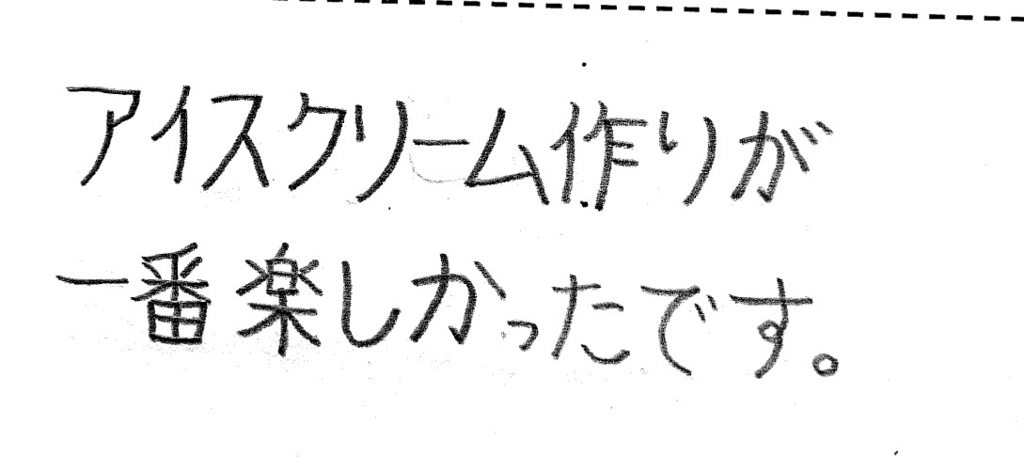 アイスクリーム作りが
一番楽しかったです。